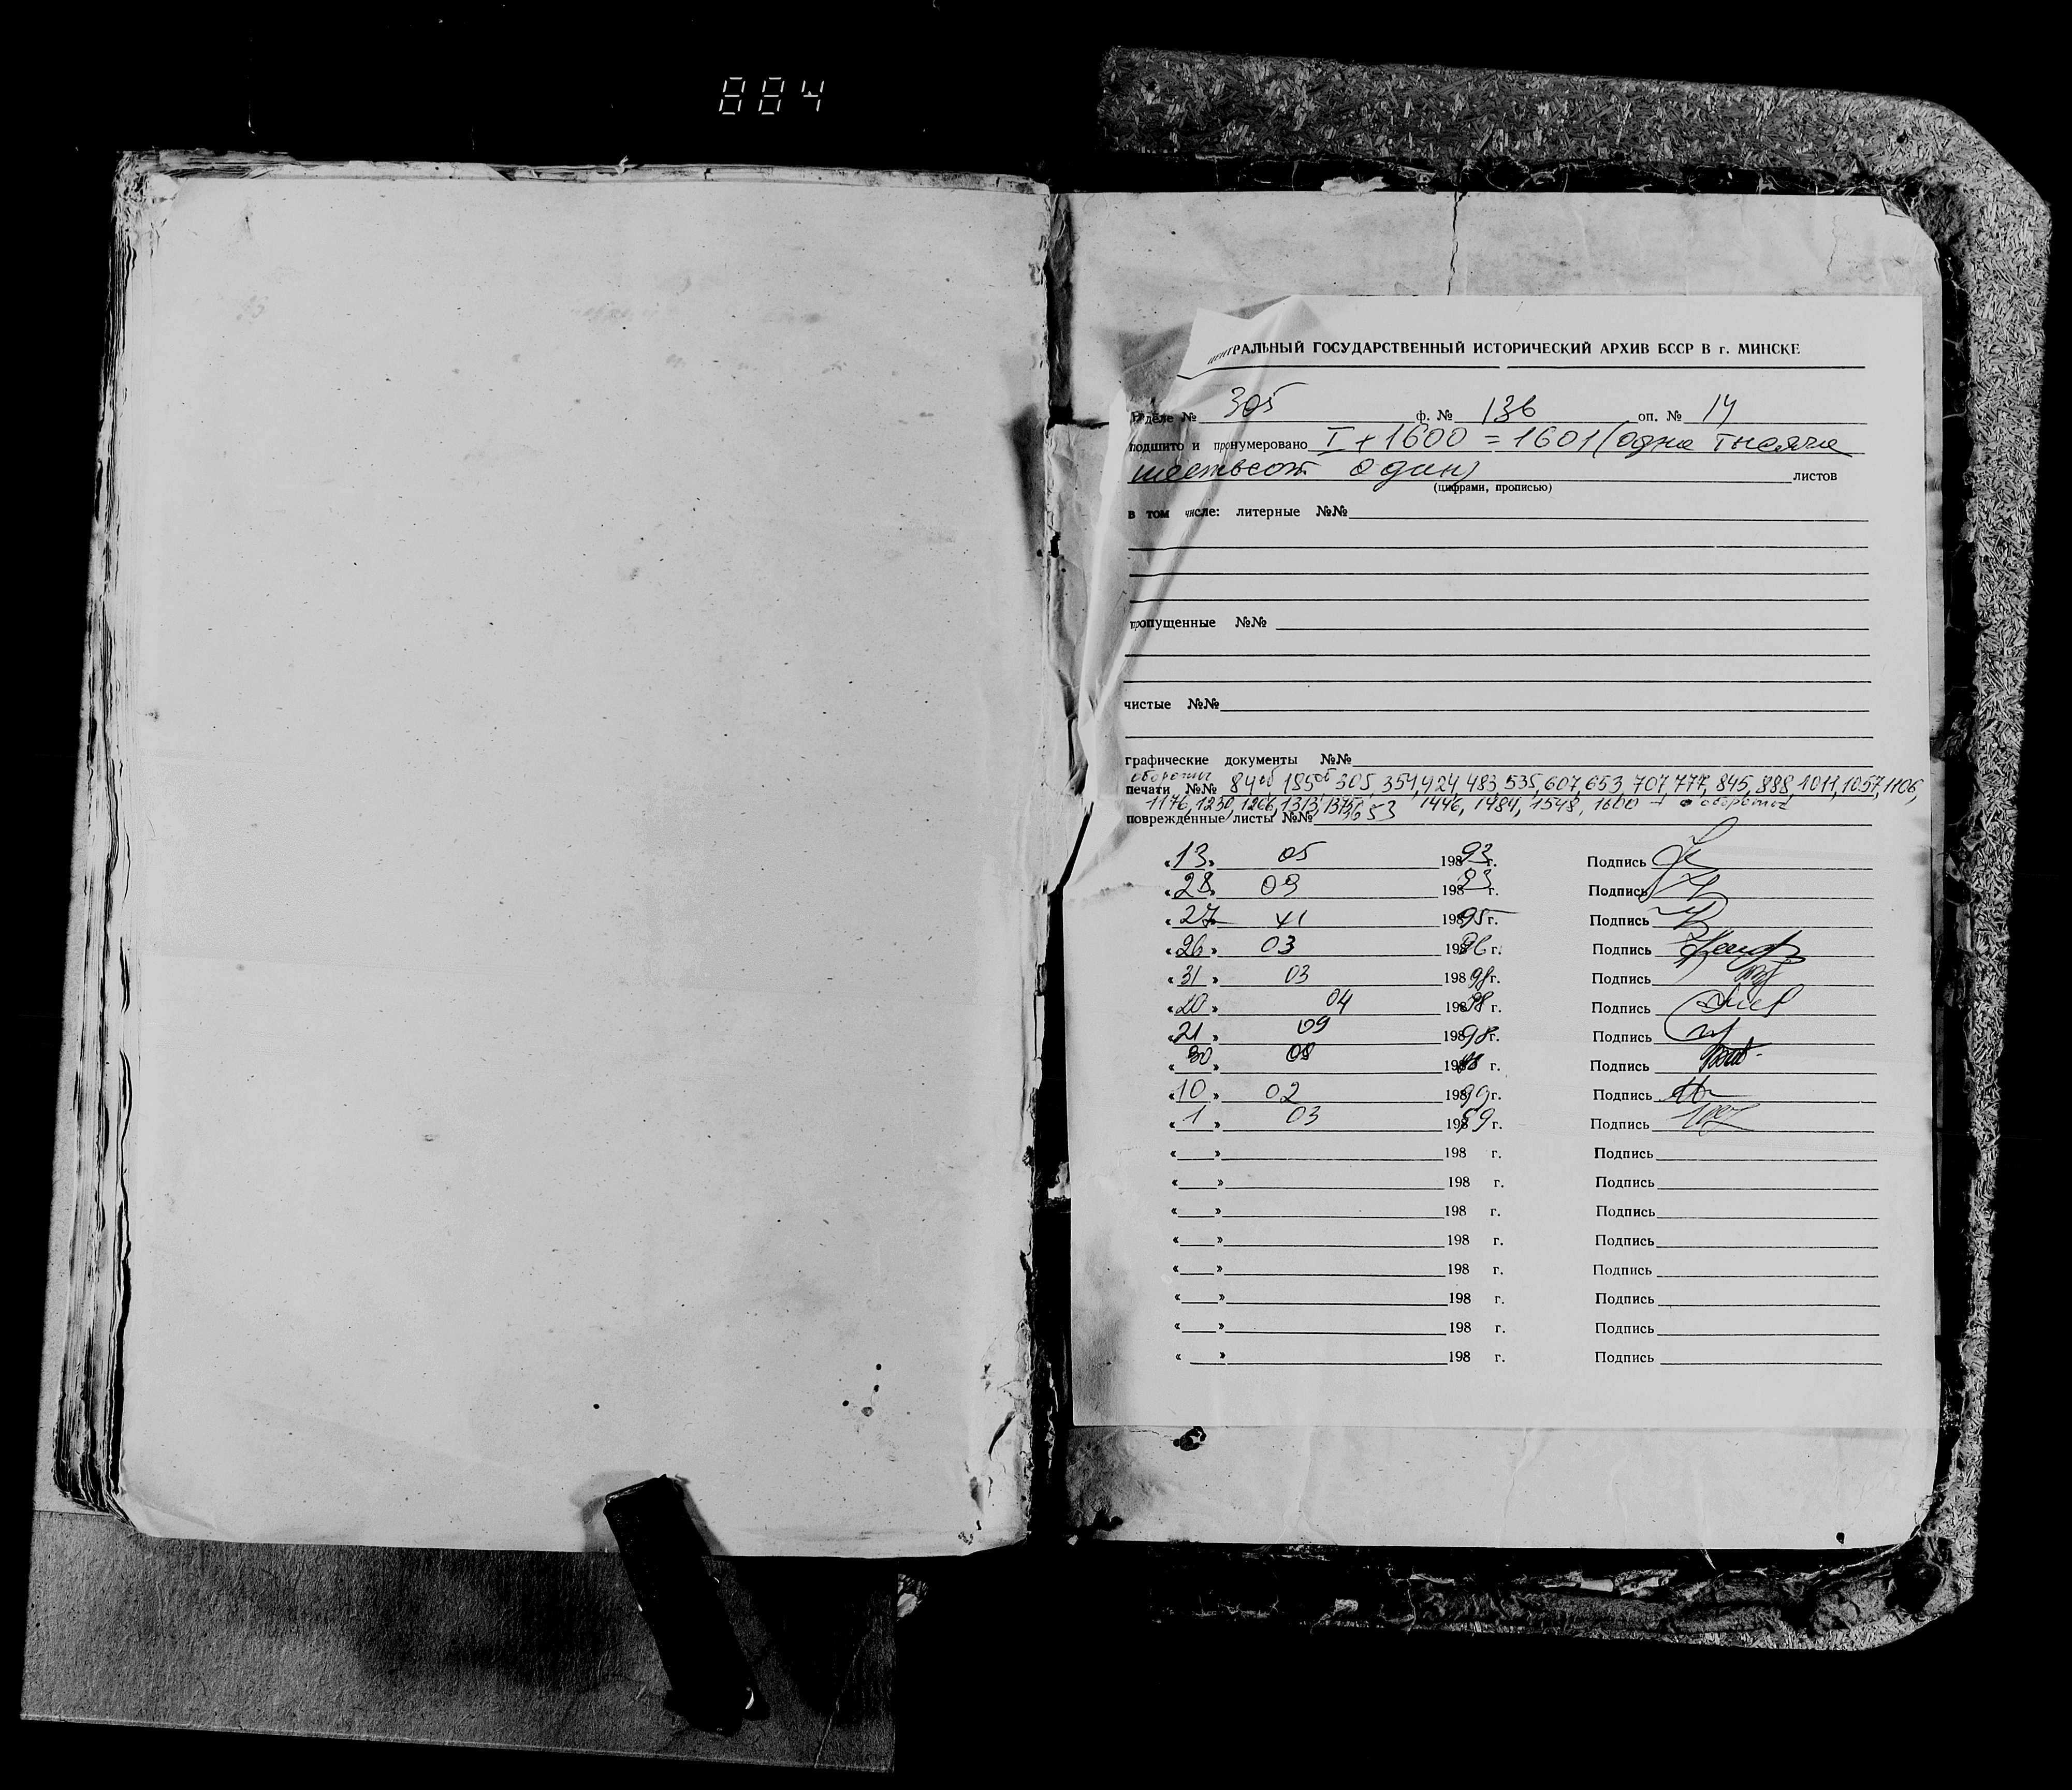 884
ЦЕНТРАЛЬНЫЙ ГОСУДАРСТВЕННЫЙ ИСТОРИЧЕСКИЙ АРХИВ БССР В г. МИНСКЕ
В деле № 305 ф. № 136 оп. № 14
подшито и пронумеровано I + 1600 = 1601 (одна тысяча
шестьсот один) листов
(цифрами, прописью)
в том числе: литерные №№
пропущенные №№
чистые №№
графические документы №№
обороты
печати №№ 84об, 195об, 305, 354, 424, 483, 535, 607, 653, 707, 777, 845, 888, 1011, 1057, 1106,
1176, 1250, 1266, 1313, 1375, 1446, 1484, 1548, 1600
поврежденные листы №№
«13» 05 198 93 г. Подпись
«28» 09 198 93 г. Подпись
«27» XI 198 95 г. Подпись
«26» 03 198 96 г. Подпись
«31» 03 198 98 г. Подпись
«20» 04 198 98 г. Подпись
«21» 09 198 98 г. Подпись
«30» 09 198 г. Подпись
«10» 02 198 99 г. Подпись
«1» 03 198 99 г. Подпись
« » 198 г. Подпись
« » 198 г. Подпись
« » 198 г. Подпись
« » 198 г. Подпись
« » 198 г. Подпись
« » 198 г. Подпись
« » 198 г. Подпись
« » 198 г. Подпись